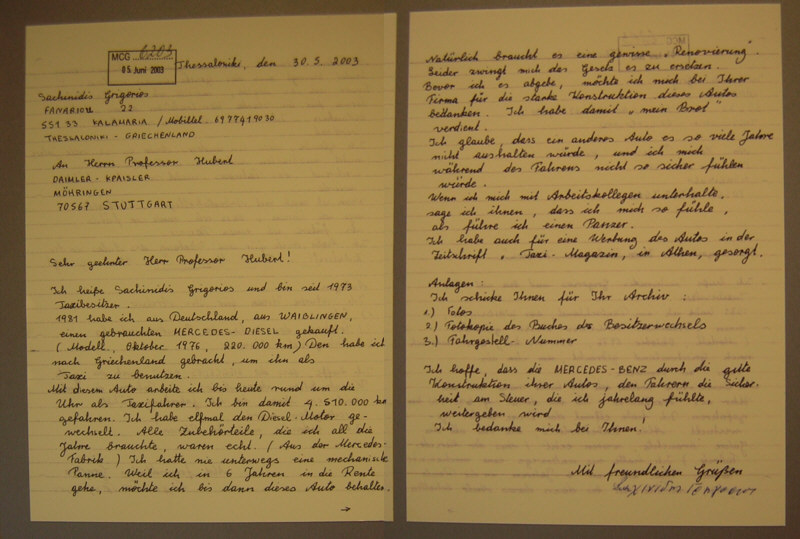 MCG 0203
05. Juni 2003
Thessaloniki, den 30.5.2003
Sachinidis Grigorios
FANARIOU 22
551 33 KALAMARIA / Mobiltel. 6977419030
THESSALONIKI - GRIECHENLAND
An Herrn Professor Hubert
DAIMLER - KRAISLER
MÖHRINGEN
70567 STUTTGART
Sehr geehrter Herr Professor Hubert!
Ich heiße Sachinidis Grigorios und bin seit 1973
Taxibesitzer.
1981 habe ich aus Deutschland, aus WAIBLINGEN,
einen gebrauchten MERCEDES-DIESEL gekauft.
(Modell, Oktober 1976, 220.000 km) Den habe ich
nach Griechenland gebracht, um ihn als
Taxi zu benutzen.
Mit diesem Auto arbeite ich bis heute rund um die
Uhr als Taxifahrer. Ich bin damit 4.510.000 km
gefahren. Ich habe elfmal den Diesel-Motor ge-
wechselt. Alle Zubehörteile, die ich all die
Jahre brauchte, waren echt. (Aus der Mercedes-
Fabrik) Ich hatte nie unterwegs eine mechanische
Panne. Weil ich in 6 Jahren in die Rente
gehe, möchte ich bis dann dieses Auto behalten.
→
Natürlich braucht es eine gewisse „Renovierung".
Leider zwingt mich das Gesetz es zu ersetzen.
Bevor ich es abgebe, möchte ich mich bei Ihrer
Firma für die starke Konstruktion dieses Autos
bedanken. Ich habe damit „mein Brot"
verdient.
Ich glaube, dass ein anderes Auto es so viele Jahre
nicht aushalten würde, und ich mich
während des Fahrens nicht so sicher fühlen
würde.
Wenn ich mich mit Arbeitskollegen unterhalte,
sage ich ihnen, dass ich mich so fühle,
als führe ich einen Panzer.
Ich habe auch für eine Werbung des Autos in der
Zeitschrift, Taxi-Magazin, in Athen, gesorgt.
Anlagen:
Ich schicke Ihnen für Ihr Archiv:
1.) Fotos
2.) Fotokopie des Buches des Besitzerwechsels
3.) Fahrgestell-Nummer
Ich hoffe, dass die MERCEDES-BENZ durch die gute
Konstruktion ihrer Autos, den Fahrern die Sicher-
heit am Steuer, die ich jahrelang fühlte,
weitergeben wird
Ich bedanke mich bei Ihnen!
Mit freundlichen Grüßen